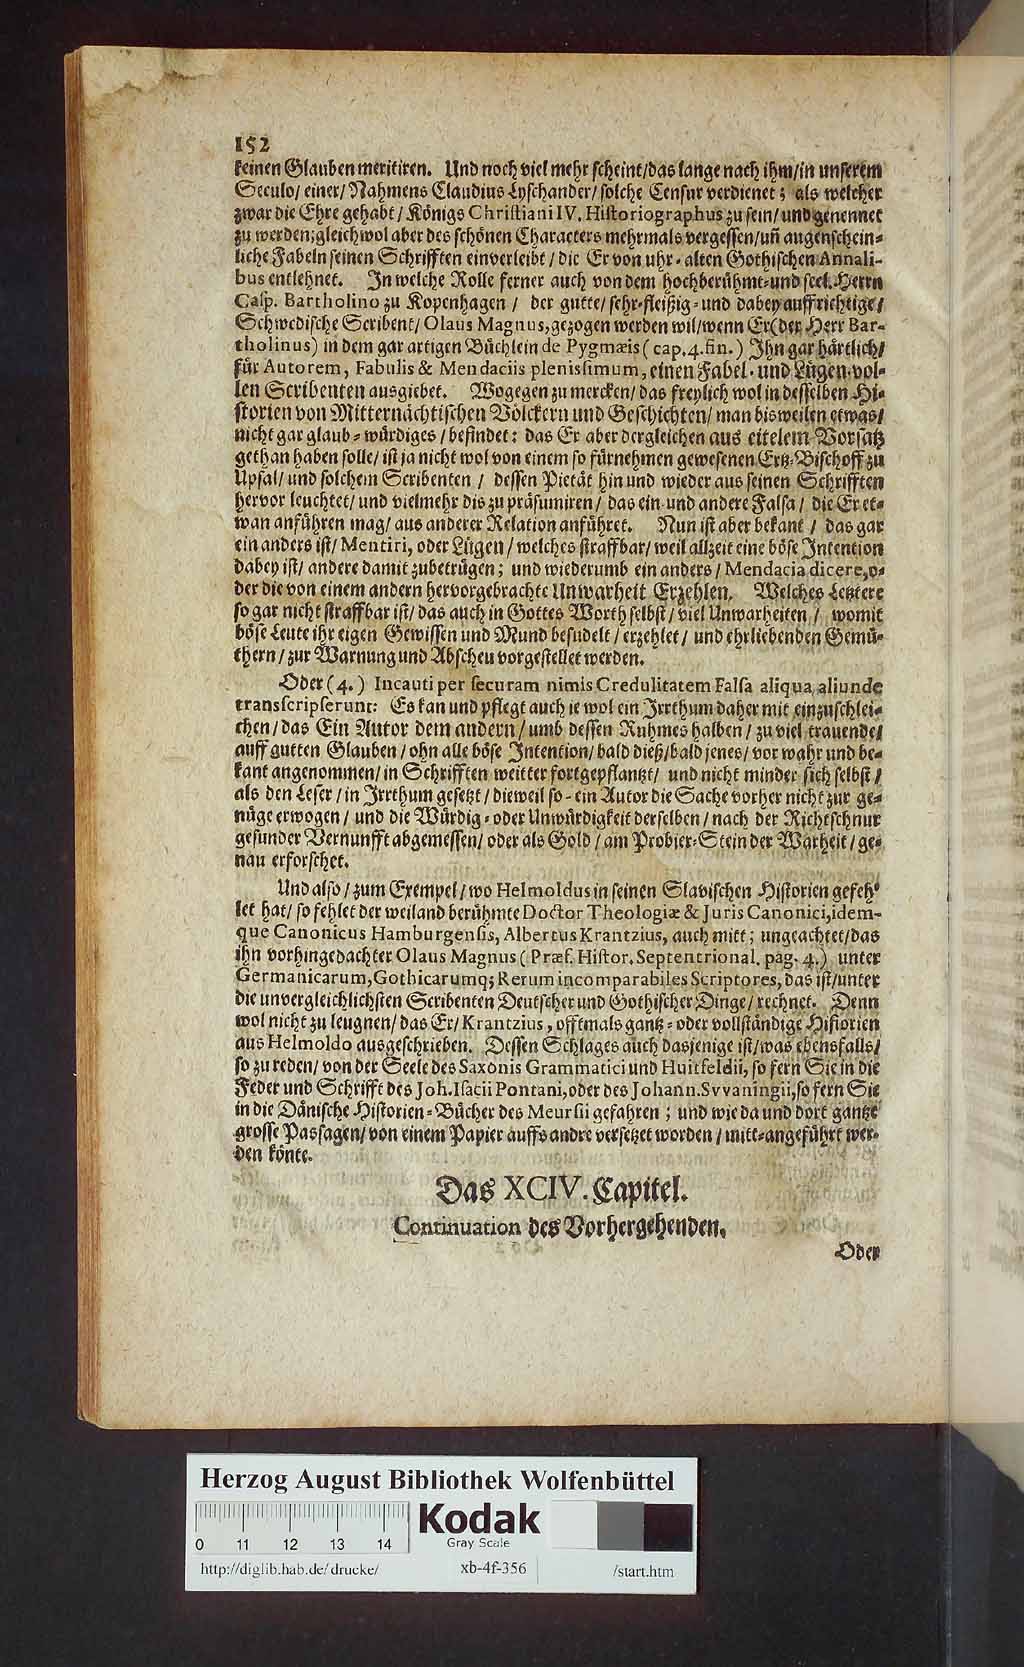 152
keinen Glauben meritiren. Und noch viel mehr scheint/das lange nach ihm/in unserem
Seculo/ einer/ Nahmens Claudius Lyschander/ solche Censur verdienet; als welcher
zwar die Ehre gehabt/ Königs Christiani IV. Historiographus zu sein/ und genennet
zu werden; gleichwol aber des schönen Characters mehrmals vergessen/uñ augenschein-
liche Fabeln seinen Schrifften einverleibt/ die Er von uhr-alten Gothischen Annali-
bus entlehnet. In welche Rolle ferner auch von dem hochberühmt-und seel. Herrn
Casp. Bartholino zu Kopenhagen/ der gutte/ sehr-fleißig-und dabey auffrichtige/
Schwedische Scribent/ Olaus Magnus, gezogen werden wil/wenn Er(der Herr Bar-
tholinus) in dem gar artigen Büchlein de Pygmæis (cap.4.fin.) Ihn gar härtlich/
für Autorem, Fabulis & Mendaciis plenissimum, einen Fabel-und Lügen-vol-
len Scribenten ausgiebet. Wogegen zu mercken/ das freylich wol in desselben Hi-
storien von Mitternächtischen Völckern und Geschichten/ man bisweilen etwas/
nicht gar glaub-würdiges/ befindet: das Er aber dergleichen aus eitelem Vorsatz
gethan haben solle/ ist ja nicht wol von einem so fürnehmen gewesenen Ertz-Bischoff zu
Upsal/ und solchem Scribenten/ dessen Pietät hin und wieder aus seinen Schrifften
hervor leuchtet/ und vielmehr dis zu präsumiren/ das ein-und andere Falsa/ die Er et-
wan anführen mag/ aus anderer Relation anführet. Nun ist aber bekant/ das gar
ein anders ist/ Mentiri, oder Lügen/ welches straffbar/ weil allzeit eine böse Intention
dabey ist/ andere damit zubetrügen; und wiederumb ein anders/ Mendacia dicere,o-
der die von einem andern hervorgebrachte Unwarheit Erzehlen. Welches Letztere
so gar nicht straffbar ist/ das auch in Gottes Worth selbst/ viel Unwarheiten/ womit
böse Leute ihr eigen Gewissen und Mund besudelt/ erzehlet/ und ehrliebenden Gemü-
thern/ zur Warnung und Abscheu vorgestellet werden.
Oder (4.) Incauti per securam nimis Credulitatem Falsa aliqua, aliunde
transcripserunt: Es kan und pflegt auch ie wol ein Irrthum daher mit einzuschlei-
chen/ das Ein Autor dem andern/ umb dessen Ruhmes halben/ zu viel trauende/
auff gutten Glauben/ ohn alle böse Intention/ bald dieß/bald jenes/ vor wahr und be-
kant angenommen/ in Schrifften weitter fortgepflantzt/ und nicht minder sich selbst/
als den Leser/ in Irrthum gesetzt/ dieweil so-ein Autor die Sache vorher nicht zur ge-
nüge erwogen/ und die Würdig-oder Unwürdigkeit derselben/ nach der Richtschnur
gesunder Vernunfft abgemessen/ oder als Gold/ am Probier-Stein der Warheit/ ge-
nau erforschet.
Und also/ zum Exempel/ wo Helmoldus in seinen Slavischen Historien gefeh-
let hat/ so fehlet der weiland berühmte Doctor Theologiæ & Juris Canonici, idem-
que Canonicus Hamburgensis, Albertus Krantzius, auch mitt; ungeachtet/das
ihn vorhingedachter Olaus Magnus (Præf. Histor. Septentrional. pag. 4.) unter
Germanicarum, Gothicarumq; Rerum incomparabiles Scriptores, das ist/unter
die unvergleichlichsten Scribenten Deutscher und Gothischer Dinge/ rechnet. Denn
wol nicht zu leugnen/ das Er/ Krantzius, offtmals gantz-oder vollständige Historien
aus Helmoldo ausgeschrieben. Dessen Schlages auch dasjenige ist/was ebensfalls/
so zu reden/ von der Seele des Saxonis Grammatici und Huitfeldii, so fern Sie in die
Feder und Schrifft des Joh. Isacii Pontani, oder des Johann. Svvaningii, so fern Sie
in die Dänische Historien-Bücher des Meursii gefahren; und wie da und dort gantze
grosse Passagen/ von einem Papier auffs andre versetzet worden/ mitt-angeführt wer-
den könte.
Das XCIV. Capitel.
Continuation des Vorhergehenden.
Oder
Herzog August Bibliothek Wolfenbüttel
0 11 12 13 14
Kodak
Gray Scale
http://diglib.hab.de/drucke/ xb-4f-356 /start.htm